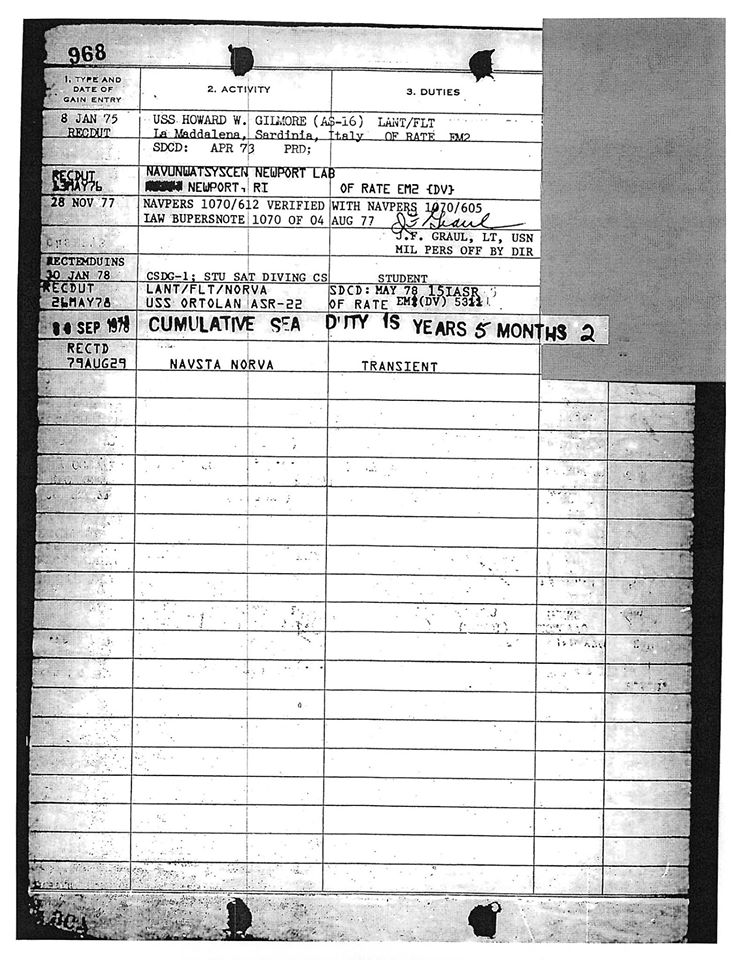 968
1. TYPE AND DATE OF GAIN ENTRY 2. ACTIVITY 3. DUTIES
8 JAN 75 USS HOWARD W. GILMORE (AS-16) LANT/FLT
RECDUT La Maddalena, Sardinia, Italy OF RATE EM2
SDCD: APR 73 PRD;
RECDUT NAVUNWATSYSCEN NEWPORT LAB
13MAY76 NEWPORT, RI OF RATE EM2 {DV}
28 NOV 77 NAVPERS 1070/612 VERIFIED WITH NAVPERS 1070/605
IAW BUPERSNOTE 1070 OF 04 AUG 77
J.F. GRAUL, LT, USN
MIL PERS OFF BY DIR
RECTEMDUINS
30 JAN 78 CSDG-1; STU SAT DIVING CS STUDENT
RECDUT LANT/FLT/NORVA SDCD: MAY 78 15IASR
26MAY78 USS ORTOLAN ASR-22 OF RATE EM2(DV) 5311
SEP 1978 CUMULATIVE SEA DUTY IS YEARS 5 MONTHS 2
RECTD
79AUG29 NAVSTA NORVA TRANSIENT